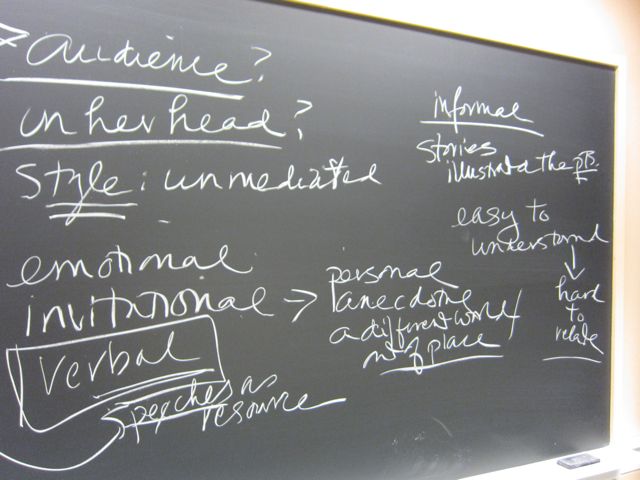 audience?
in her head?
Style: unmediated
emotional
invitational →
verbal
Speeches as
resource
personal
anecdote
a different world/
of place
informal
Stories
illustrate the pts.
easy to
understand
↓
hard
to
relate